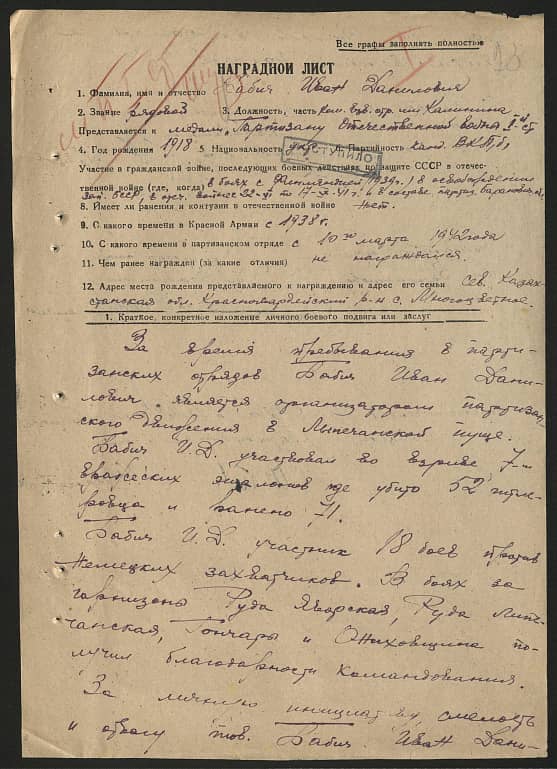 Все графы заполнять полностью
НАГРАДНОЙ ЛИСТ
1. Фамилия, имя и отчество Бабич Иван Данилович
2. Звание рядовой 3. Должность, часть ком. взв. отр. им. Калинина
Представляется к медали „Партизану Отечественной войны" I-й ст
4. Год рождения 1918 5 Национальность укр. 6. Партийность канд. ВКП(б)
ПОСТУПИЛО
Участие в гражданской войне, последующих боевых действиях по защите СССР в отечес-
твенной войне (где, когда) в боях с Финляндией 1939г. в освобождении
Зап. БССР, в отеч. войне 22-VI по 17-X-41 г. в составе партиз.
8. Имеет ли ранения и контузии в отечественной войне Нет.
9. С какого времени в Красной Армии с 1938г.
10. С какого времени в партизанском отряде с 10го марта 1942 года
11. Чем ранее награжден (за какие отличия) не награждался.
12. Адрес места рождения представляемого к награждению и адрес его семьи сев. Казах-
станская обл. Красногвардейский р-н с. Многоцветное.
1. Краткое, конкретное изложение личного боевого подвига или заслуг
За время пребывания в парти-
занских отрядов Бабич Иван Дани-
лович является организатором партизан-
ского движения в Липечанской пуще.
Бабич И.Д. участвовал во взрыве 7-и
вражеских эшелонов где убито 52 гитле-
ровца и ранено 71.
Бабич И.Д. участник 18 боев против
немецких захватчиков. В боях за
гарнизоны Руда Яворская, Руда Липи-
чанская, Гончары и Охиховщина по-
лучил благодарности командования.
За личную инициативу, смелость
и отвагу тов. Бабич Иван Дани-